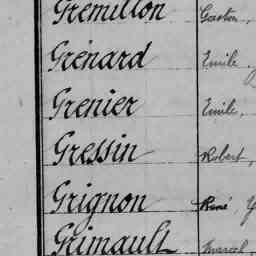 Grémillon Gaston,
Grénard Emile,
Grenier Emile,
Gressin Robert,
Grignon René,
Grimault Marcel,